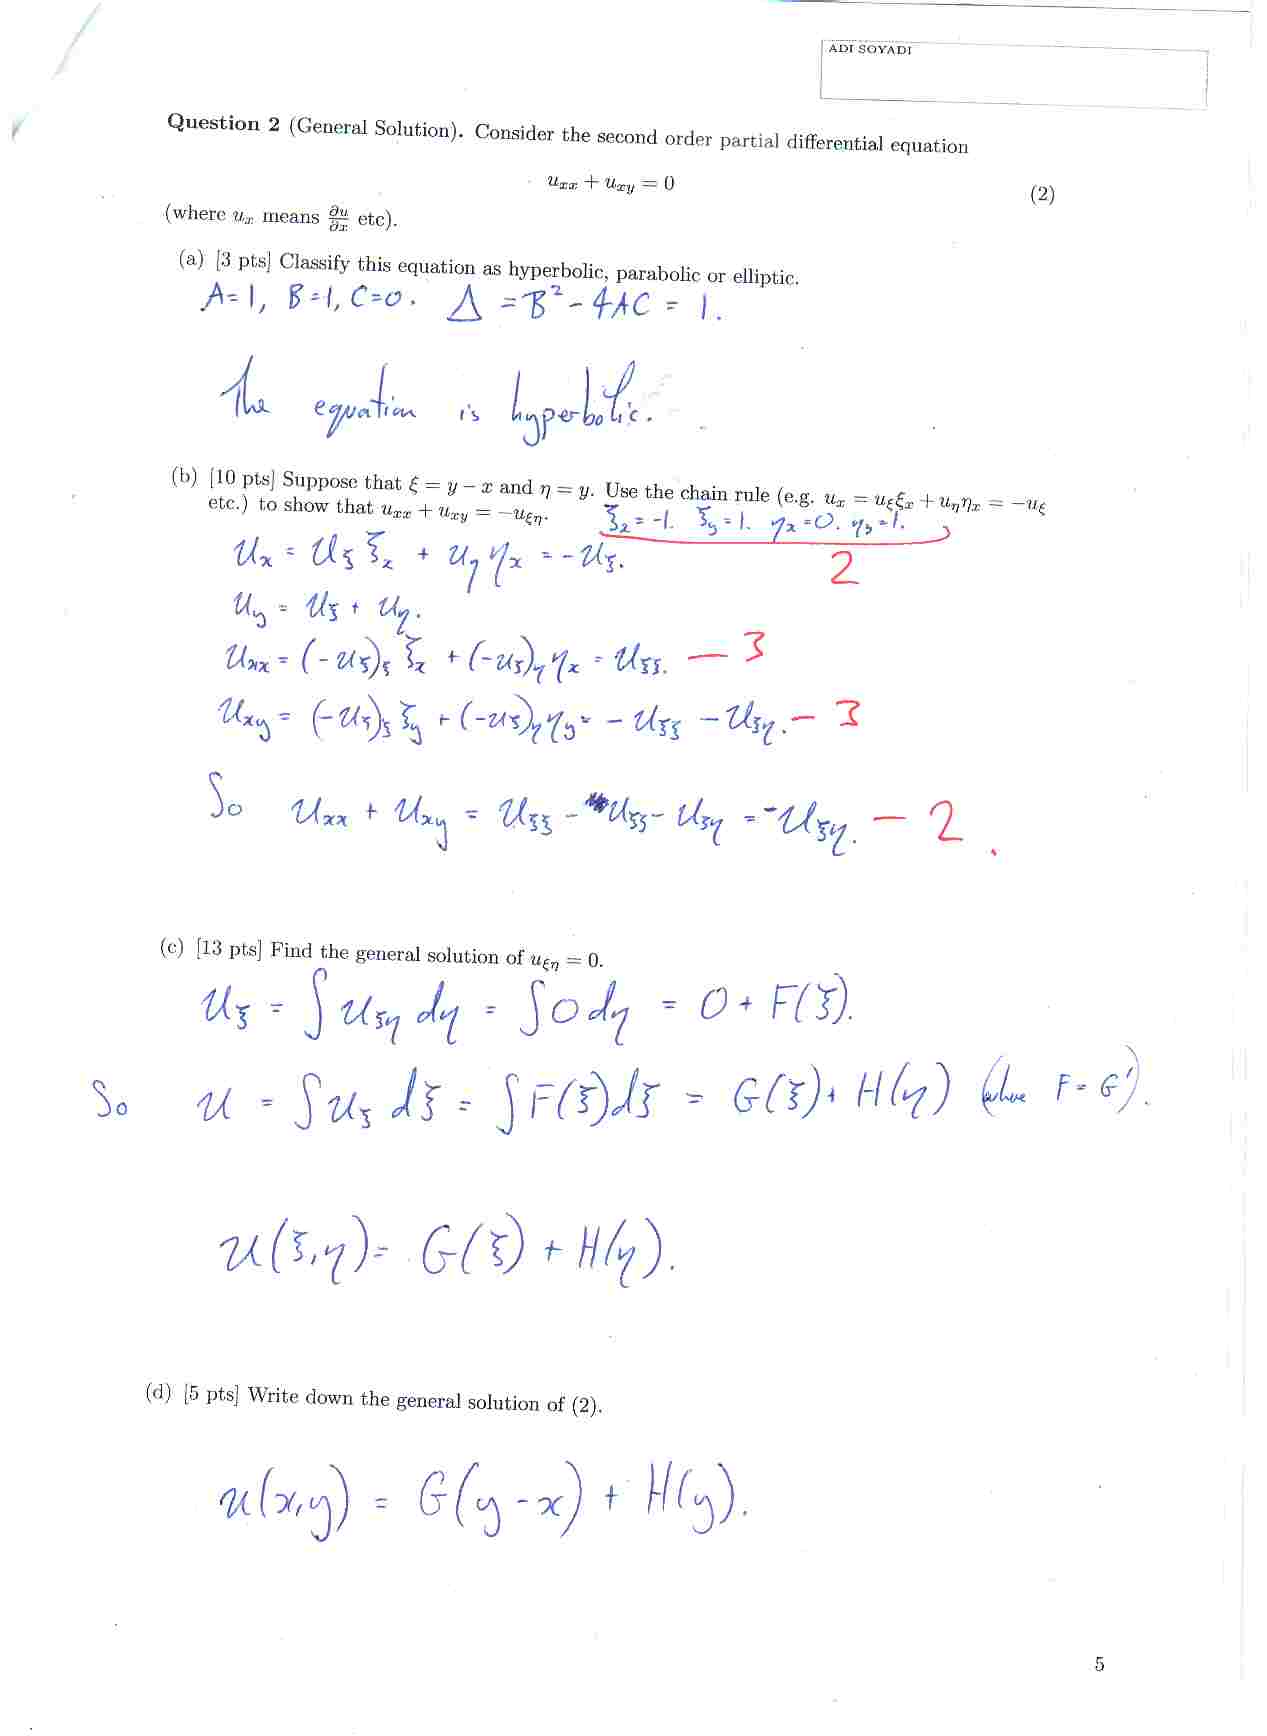 ADI SOYADI
Question 2 (General Solution). Consider the second order partial differential equation
u_xx + u_xy = 0
(2)
(where u_x means ∂u/∂x etc).
(a) [3 pts] Classify this equation as hyperbolic, parabolic or elliptic.
A=1, B=1, C=0. Δ = B² - 4AC = 1.
The equation is hyperbolic.
(b) [10 pts] Suppose that ξ = y − x and η = y. Use the chain rule (e.g. u_x = u_ξ ξ_x + u_η η_x = −u_ξ
etc.) to show that u_xx + u_xy = −u_ξη.
ξ_x = -1. ξ_y = 1. η_x = 0. η_y = 1.
2
u_x = u_ξ ξ_x + u_η η_x = -u_ξ.
u_y = u_ξ + u_η.
u_xx = (-u_ξ)_ξ ξ_x + (-u_ξ)_η η_x = u_ξξ. — 3
u_xy = (-u_ξ)_ξ ξ_y + (-u_ξ)_η η_y = - u_ξξ - u_ξη. — 3
So u_xx + u_xy = u_ξξ - u_ξξ - u_ξη = -u_ξη. — 2
(c) [13 pts] Find the general solution of u_ξη = 0.
u_ξ = ∫ u_ξη dη = ∫ 0 dη = 0 + F(ξ).
So u = ∫ u_ξ dξ = ∫ F(ξ) dξ = G(ξ) + H(η) (where F = G').
u(ξ,η) = G(ξ) + H(η).
(d) [5 pts] Write down the general solution of (2).
u(x,y) = G(y - x) + H(y).
5